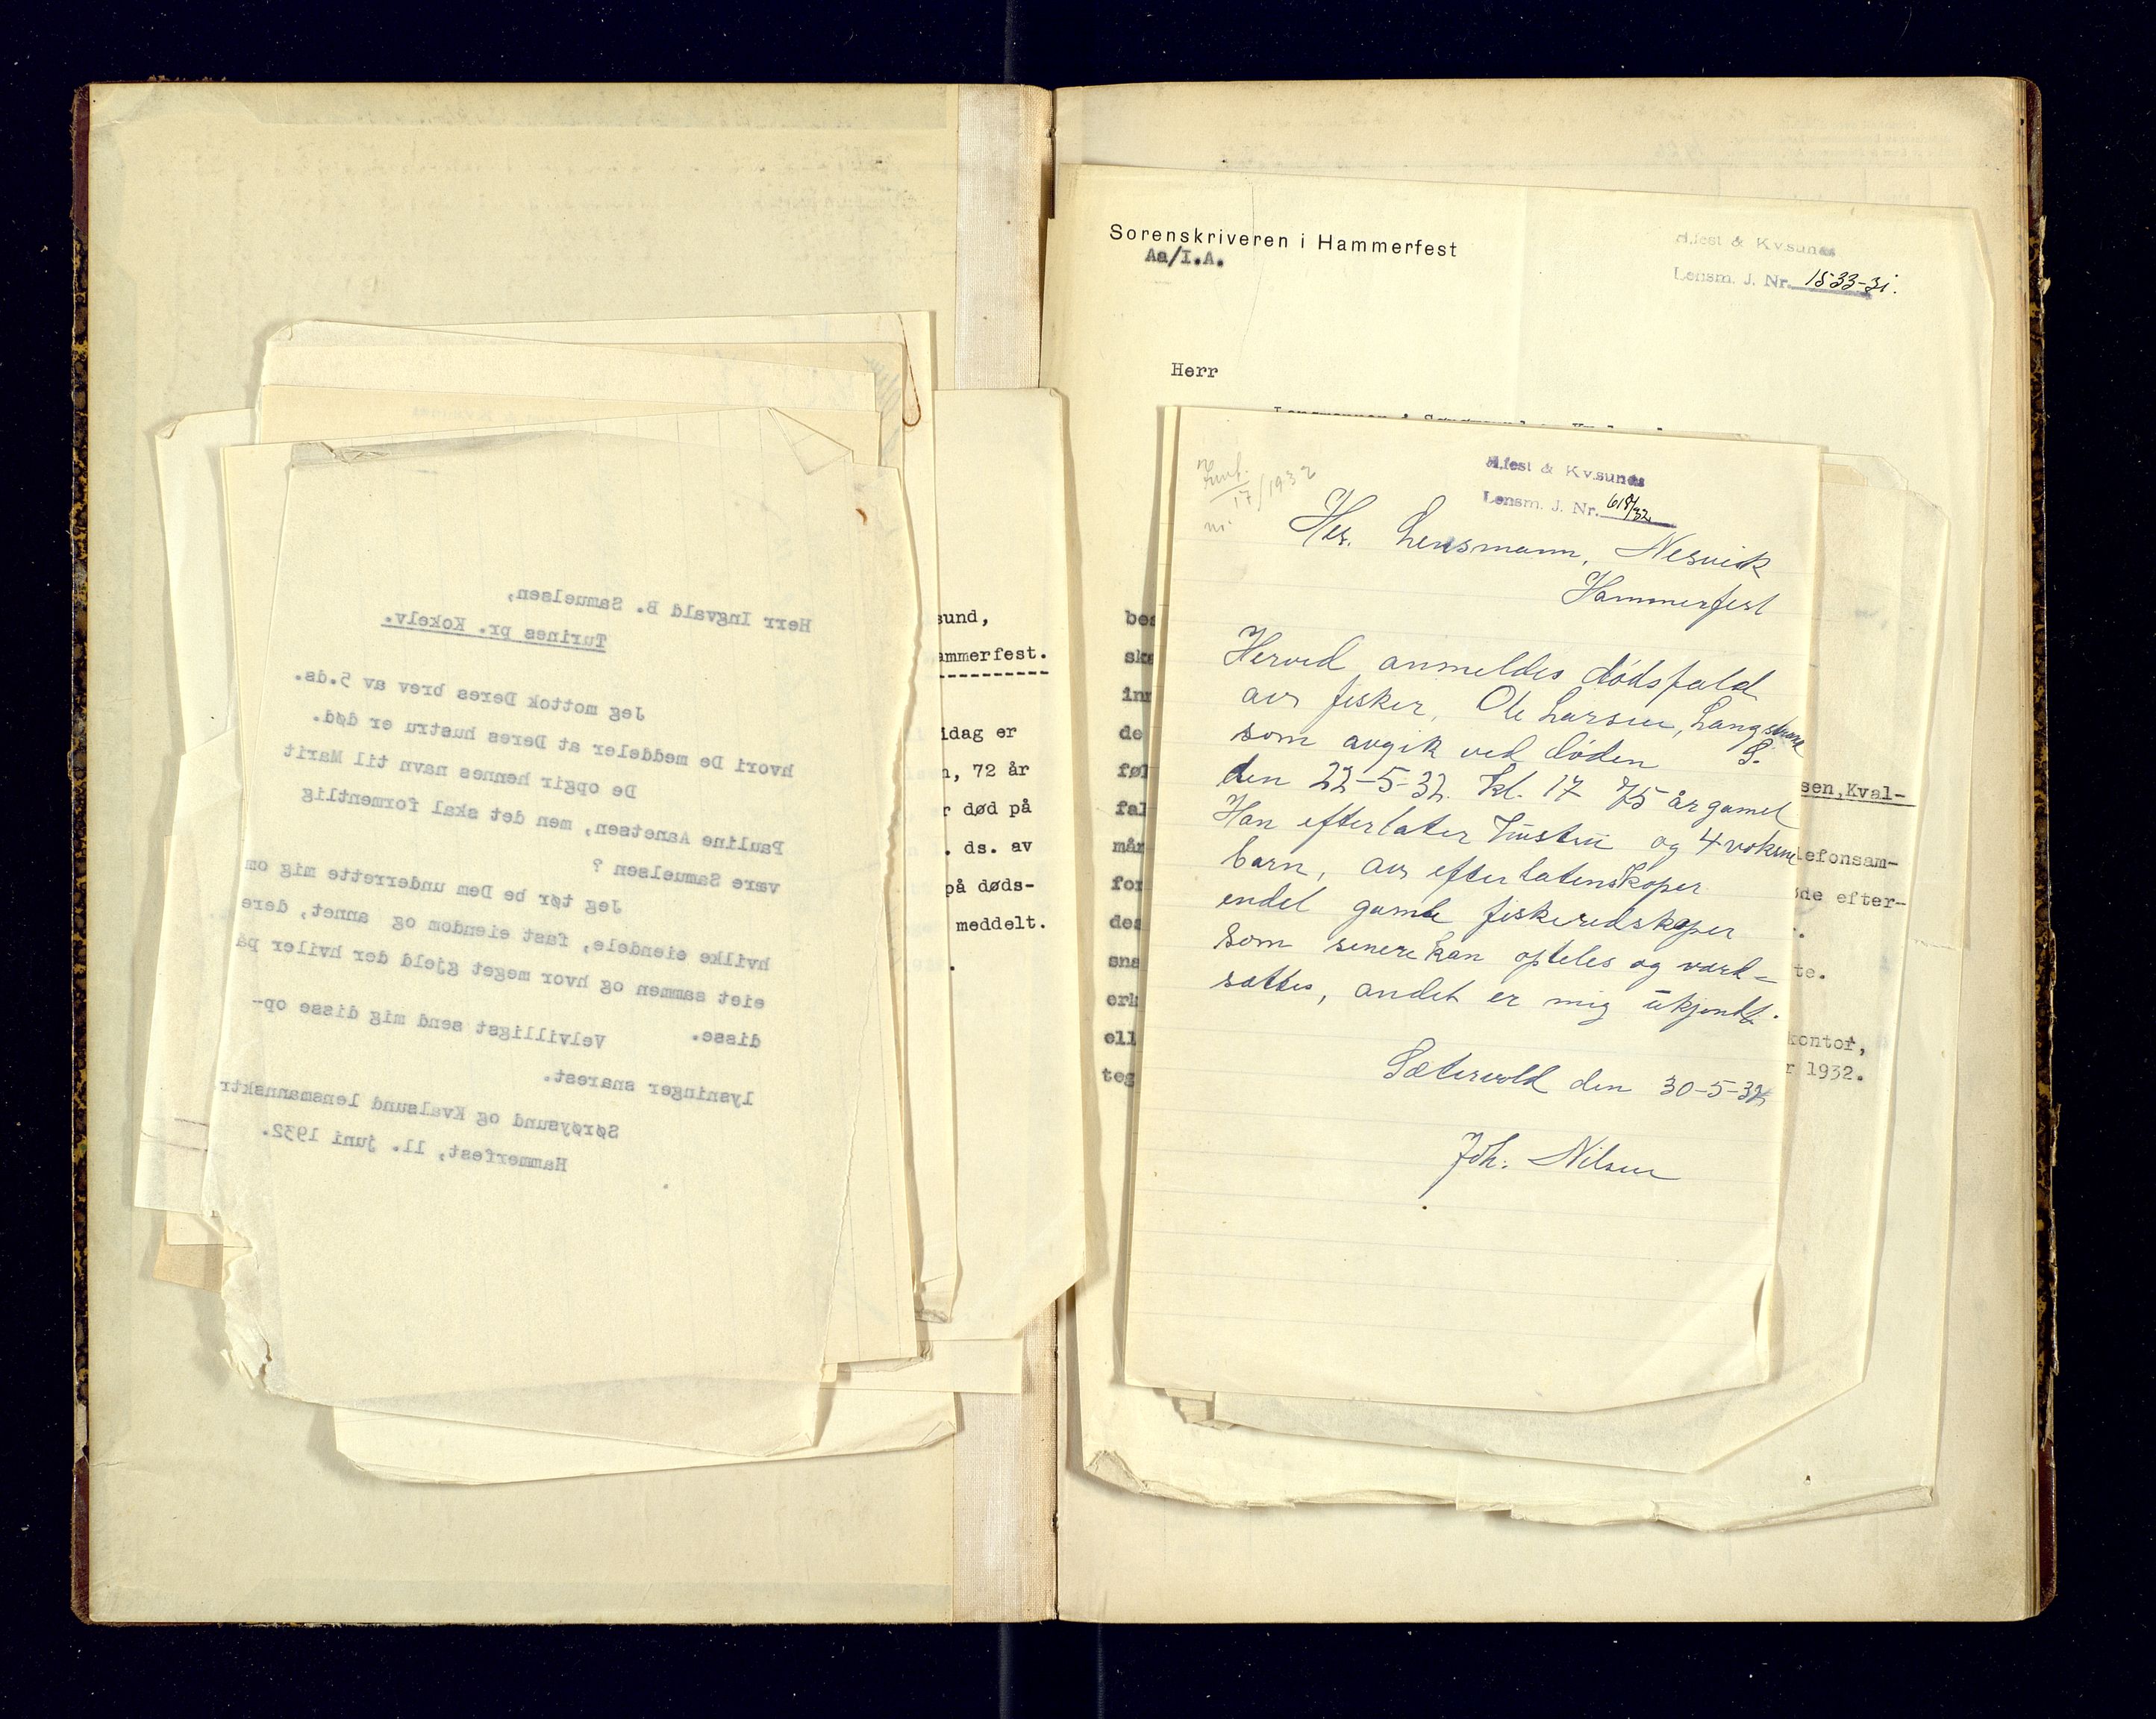 Herr Ingvald B. Samuelsen,
Turines pr. Kokelv.
Jeg mottok Deres brev av 5.ds.
hvori De meddeler at Deres hustru er død.
De opgir hennes navn til Marit
Pauline Aanetsen, men det skal formentlig
være Samuelsen ?
Jeg tør be Dem underrette mig om
hvilke eiendele, fast eiendom og annet, dere
eiet sammen og hvor meget gjeld der hviler på
disse. Velvilligst send mig disse op-
lysninger snarest.
Sørøysund og Kvalsund lensmannsktr.
Hammerfest, 11. juni 1932.
sund,
ammerfest.
idag er
n, 72 år
r død på
. ds. av
på døds-
meddelt.
Sorenskriveren i Hammerfest
Aa/I.A.
H.fest & Kv.sunds
Lensm. J. Nr. 1533-31.
Herr
bes
ske
inn
de
føl
fal
mån
for
des
sna
erk
ell
teg
H.fest & Kv.sunds
Lensm. J. Nr. 618/32
17/1932
Hr. Lensmann, Nesvik
Hammerfest
Herved anmeldes dødsfald
av fisker, Ole Larsen, Langstrand
S.
som avgik ved døden
den 22-5-32. Kl. 17 75 år gamel
Han efterlater hustru og 4 voksne
barn, av efterlatenskaper
endel gamle fiskeredskaper
som senere kan opteles og værd-
sættes, andet er mig ukjendt.
Sætervold den 30-5-32
Joh. Nilsen
sen,Kval-
lefonsam-
de efter-
te.
kontor,
r 1932.